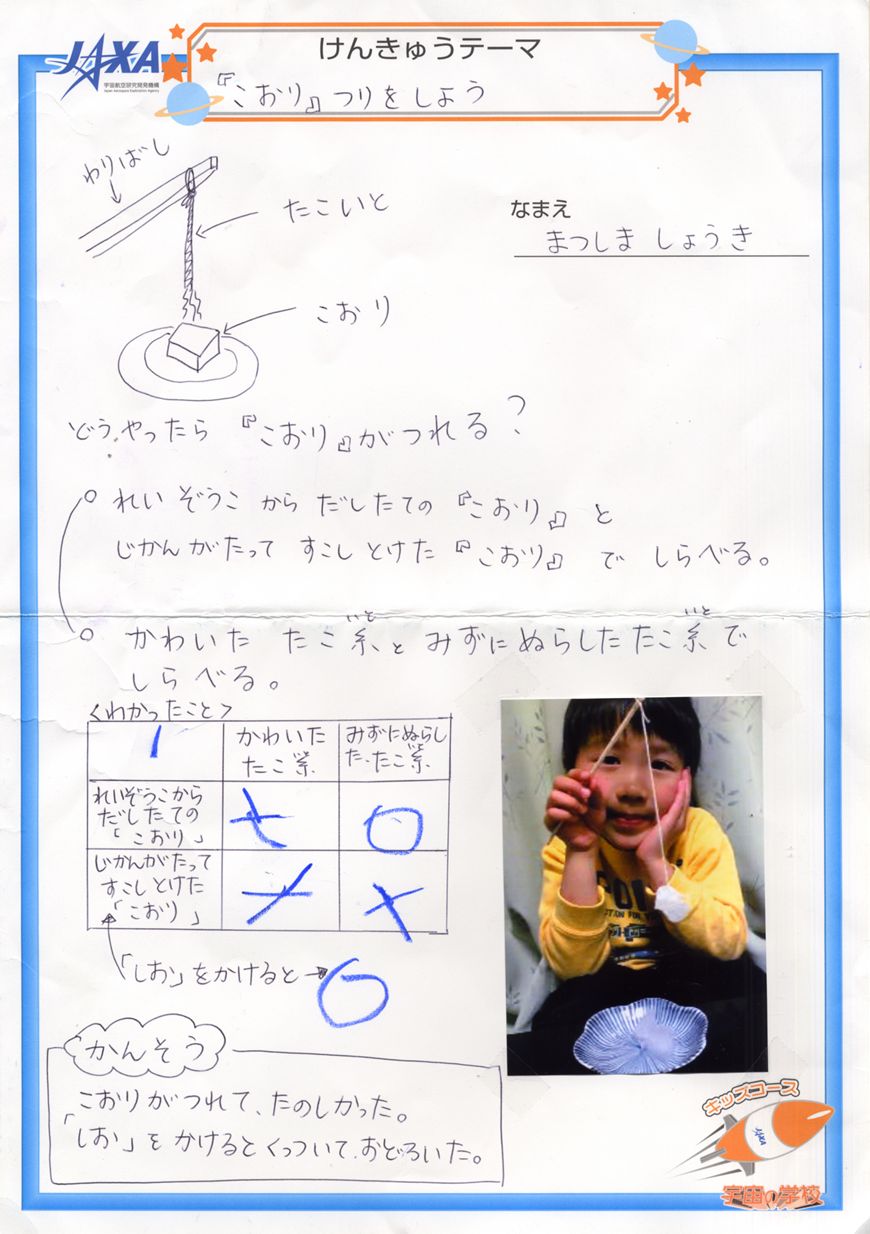 JAXA
宇宙航空研究開発機構
Japan Aerospace Exploration Agency
けんきゅうテーマ
『こおり』つりをしよう
わりばし
たこいと
なまえ
まつしま しょうき
こおり
どうやったら『こおり』がつれる?
○ れいぞうこ から だしたての『こおり』と
じかんがたって すこし とけた『こおり』で しらべる。
○ かわいた たこ糸と みずにぬらしたたこ糸で
いと いと
しらべる。
<わかったこと>
かわいた
たこ糸
みずにぬらし
た、たこ糸
れいぞうこから
だしたての
「こおり」
× ○
じかんがたって
すこしとけた
「こおり」
× ×
「しお」をかけると→ ○
かんそう
こおりがつれて、たのしかった。
「しお」をかけるとくっついて、おどろいた。
キッズコース
JAXA
宇宙の学校